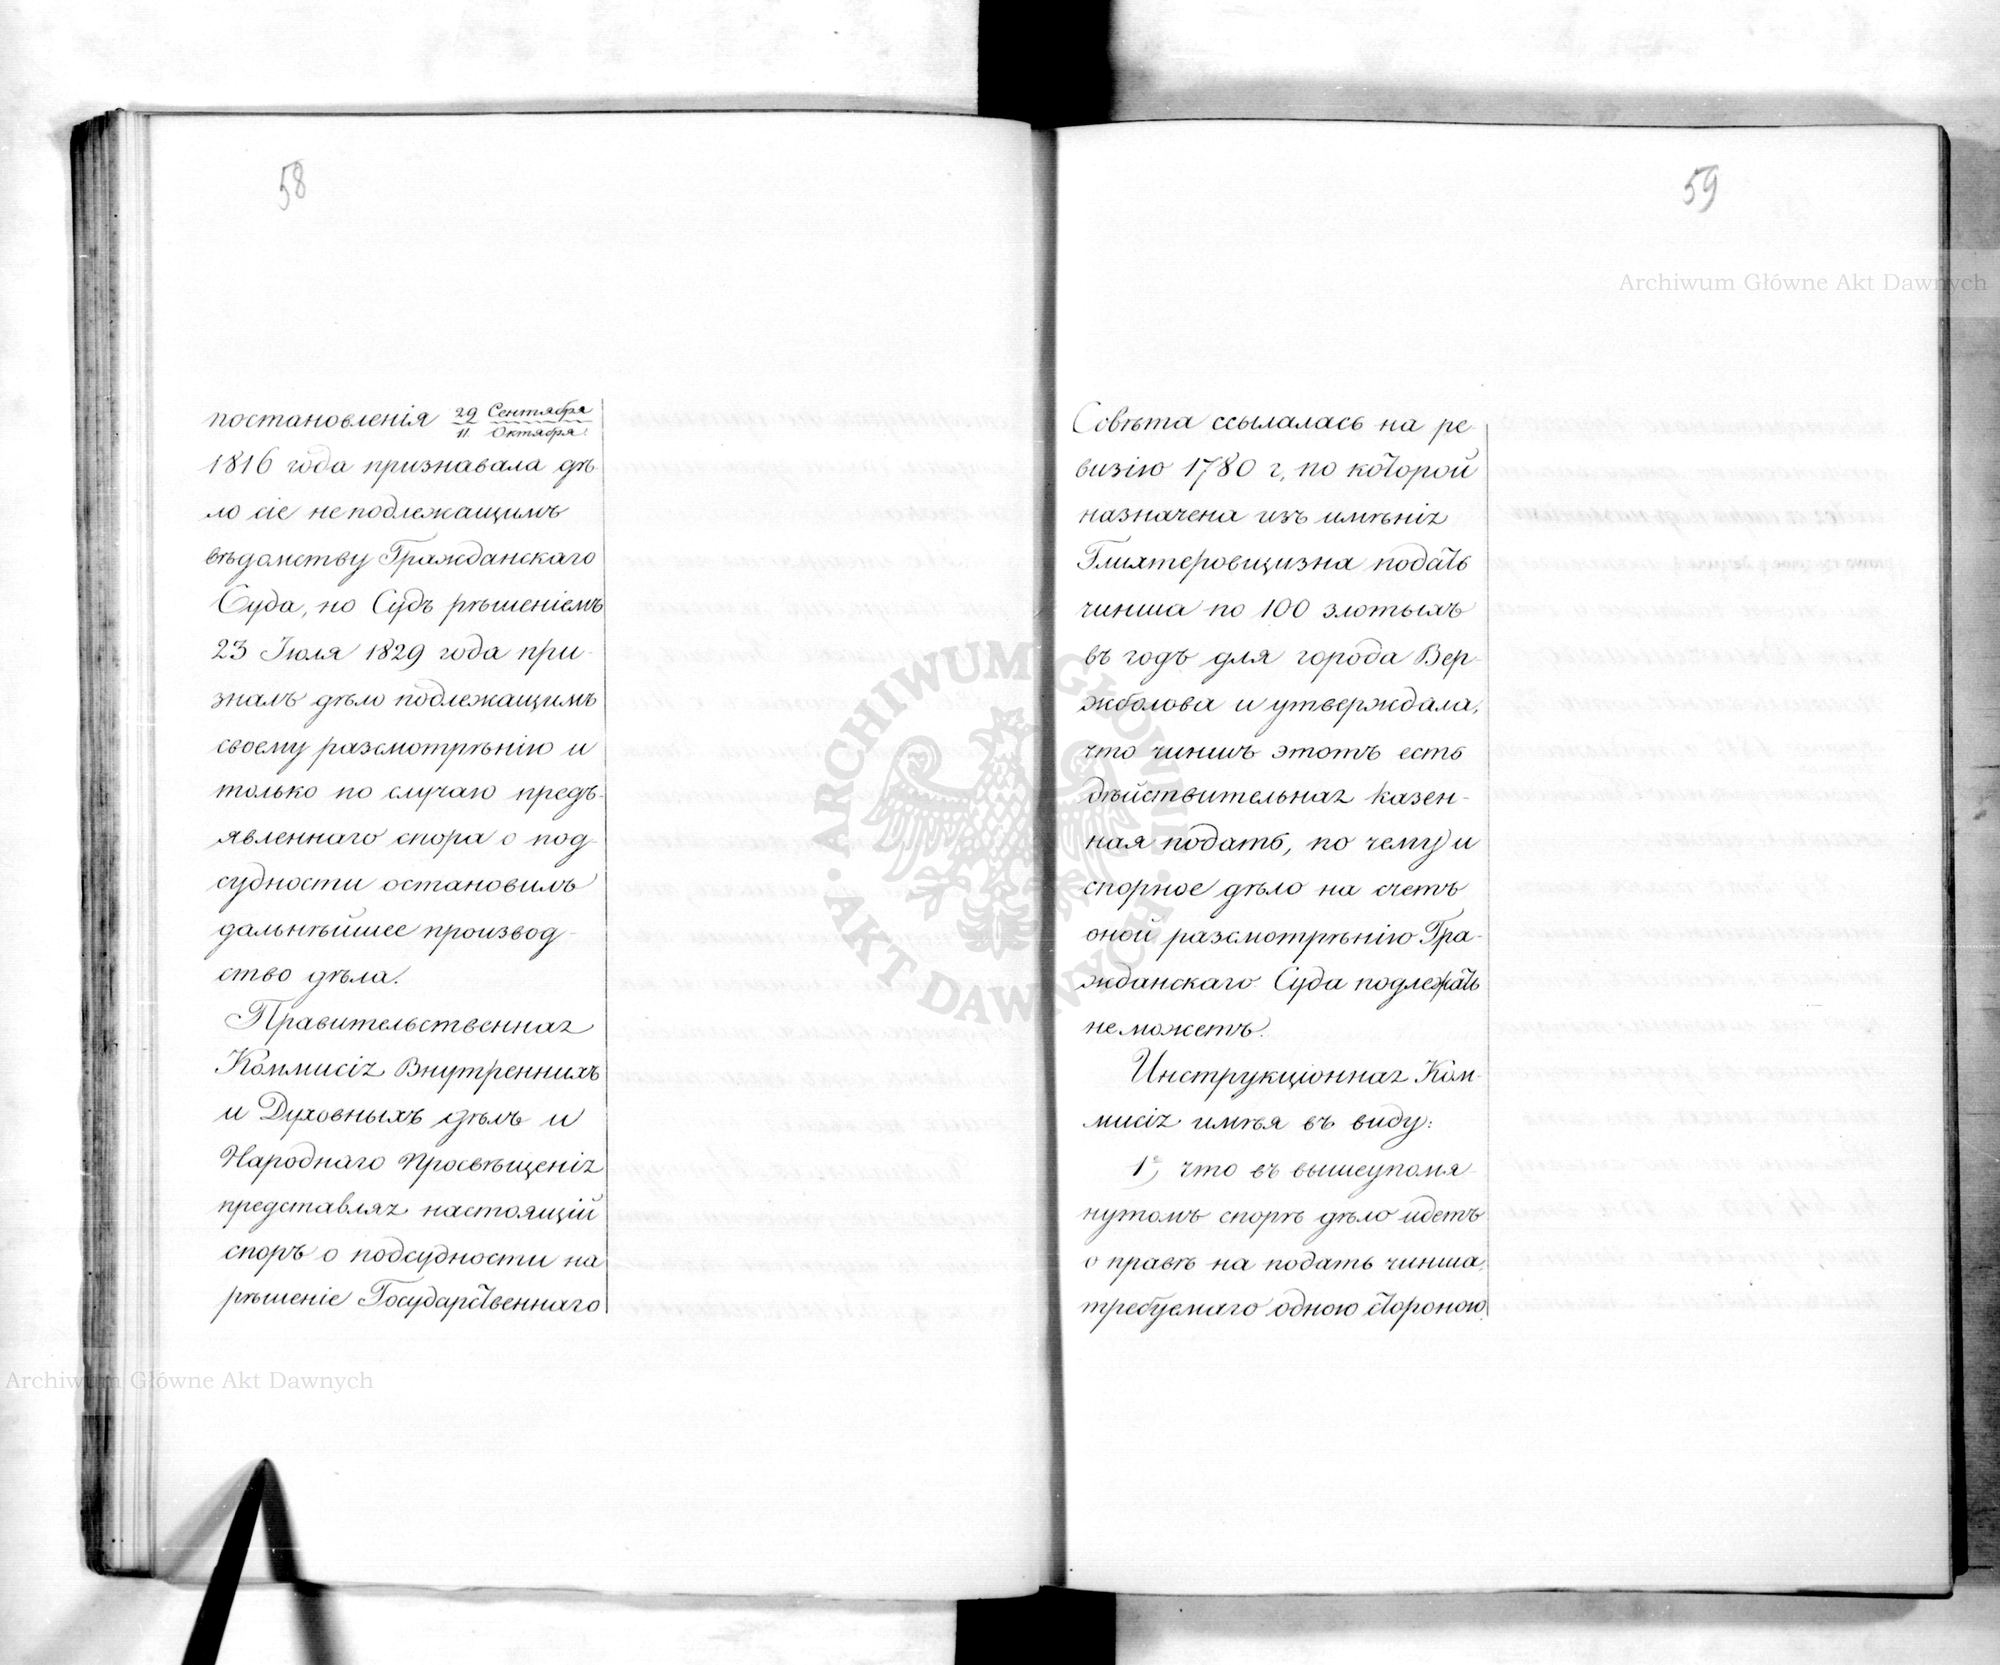 58
постановленія 29 Сентября / 11 Октября
1816 года признавала дѣ-
ло сіе неподлежащимъ
вѣдомству Гражданскаго
Суда, но Судъ рѣшеніемъ
23 Іюля 1829 года при-
зналъ дѣло подлежащимъ
своему разсмотрѣнію и
только по случаю предъ-
явленнаго спора о под-
судности остановилъ
дальнѣйшее производ-
ство дѣла.
Правительственная
Коммисія Внутреннихъ
и Духовныхъ дѣлъ и
Народнаго Просвѣщенія
представляя настоящій
споръ о подсудности на
рѣшеніе Государственнаго
59
Совѣта ссылалась на ре-
визію 1780 г, по которой
назначена изъ имѣнія
подать
чинша по 100 злотыхъ
въ годъ для города Вер-
жболова и утверждала,
что чиншъ этотъ есть
дѣйствительная казен-
ная подать, по чему и
спорное дѣло на счетъ
оной разсмотрѣнію Гра-
жданскаго Суда подлежать
неможетъ.
Инструкціонная Ком-
мисія имѣя въ виду:
1, что въ вышеупомя-
нутомъ спорѣ дѣло идетъ
о правѣ на подать чинша,
требуемаго одною стороною
Archiwum Główne Akt Dawnych
ARCHIWUM GŁÓWNE · AKT DAWNYCH ·
Archiwum Główne Akt Dawnych